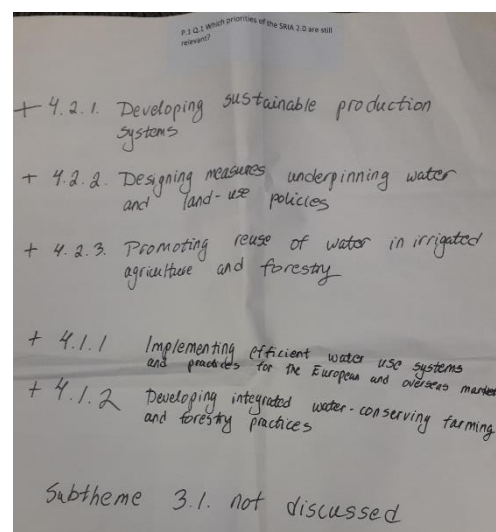 P.1 Q.1 Which priorities of the SRIA 2.0 are still
relevant?
+ 4.2.1. Developing sustainable production
systems
+ 4.2.2. Designing measures underpinning water
and land-use policies
+ 4.2.3. Promoting reuse of water in irrigated
agriculture and forestry
+ 4.1.1 Implementing efficient water use systems
and practices for the European and overseas market
+ 4.1.2 Developing integrated water-conserving farming
and forestry practices
Subtheme 3.1. not discussed